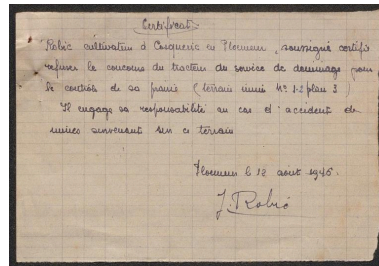 Certificat
Robic cultivateur à Cosquéric en Ploemeur, soussigné certifie
refuser le concours du tracteur du service de deminage pour
le contrôle de sa prairie (terrain miné N° 1-2 plan 3)
Il engage sa responsabilité au cas d'accident de
mines survenant sur ce terrain
Ploemeur le 12 août 1946.
J. Robic